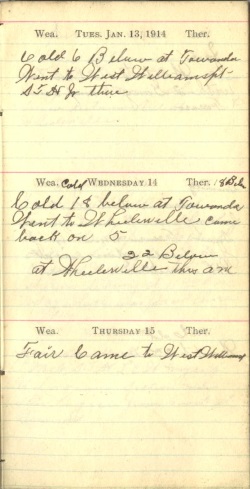 Wea. TUES. JAN. 13, 1914 Ther.
Cold 6 Below at Towanda
Went to West Williamspt
S. F. H. Jr there
Wea. Cold WEDNESDAY 14 Ther. 18 Belo
Cold 18 below at Towanda
Went to Wheelerville came
back on 5
22 Below
at Wheelerville this am
Wea. THURSDAY 15 Ther.
Fair Came to West Willams